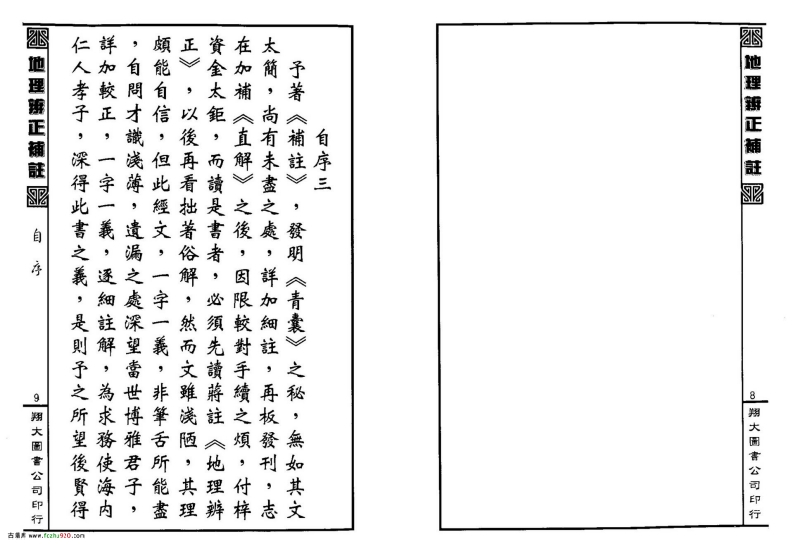 地理辨正補註
8
翔大圖書公司印行
自序三
予著《補註》，發明《青囊》之秘，無如其文
太簡，尚有未盡之處，詳加細註，再板發刊，志
在加補《直解》之後，因限較對手續之煩，付梓
資金太鉅，而讀是書者，必須先讀蔣註《地理辨
正》，以後再看拙著俗解，然而文雖淺陋，其理
頗能自信，但此經文，一字一義，非筆舌所能盡
，自問才識淺薄，遺漏之處深望當世博雅君子，
詳加較正，一字一義，逐細註解，為求務使海內
仁人孝子，深得此書之義，是則予之所望後賢得
地理辨正補註
自序
9
翔大圖書公司印行
古籍库 www.fczhu920.com